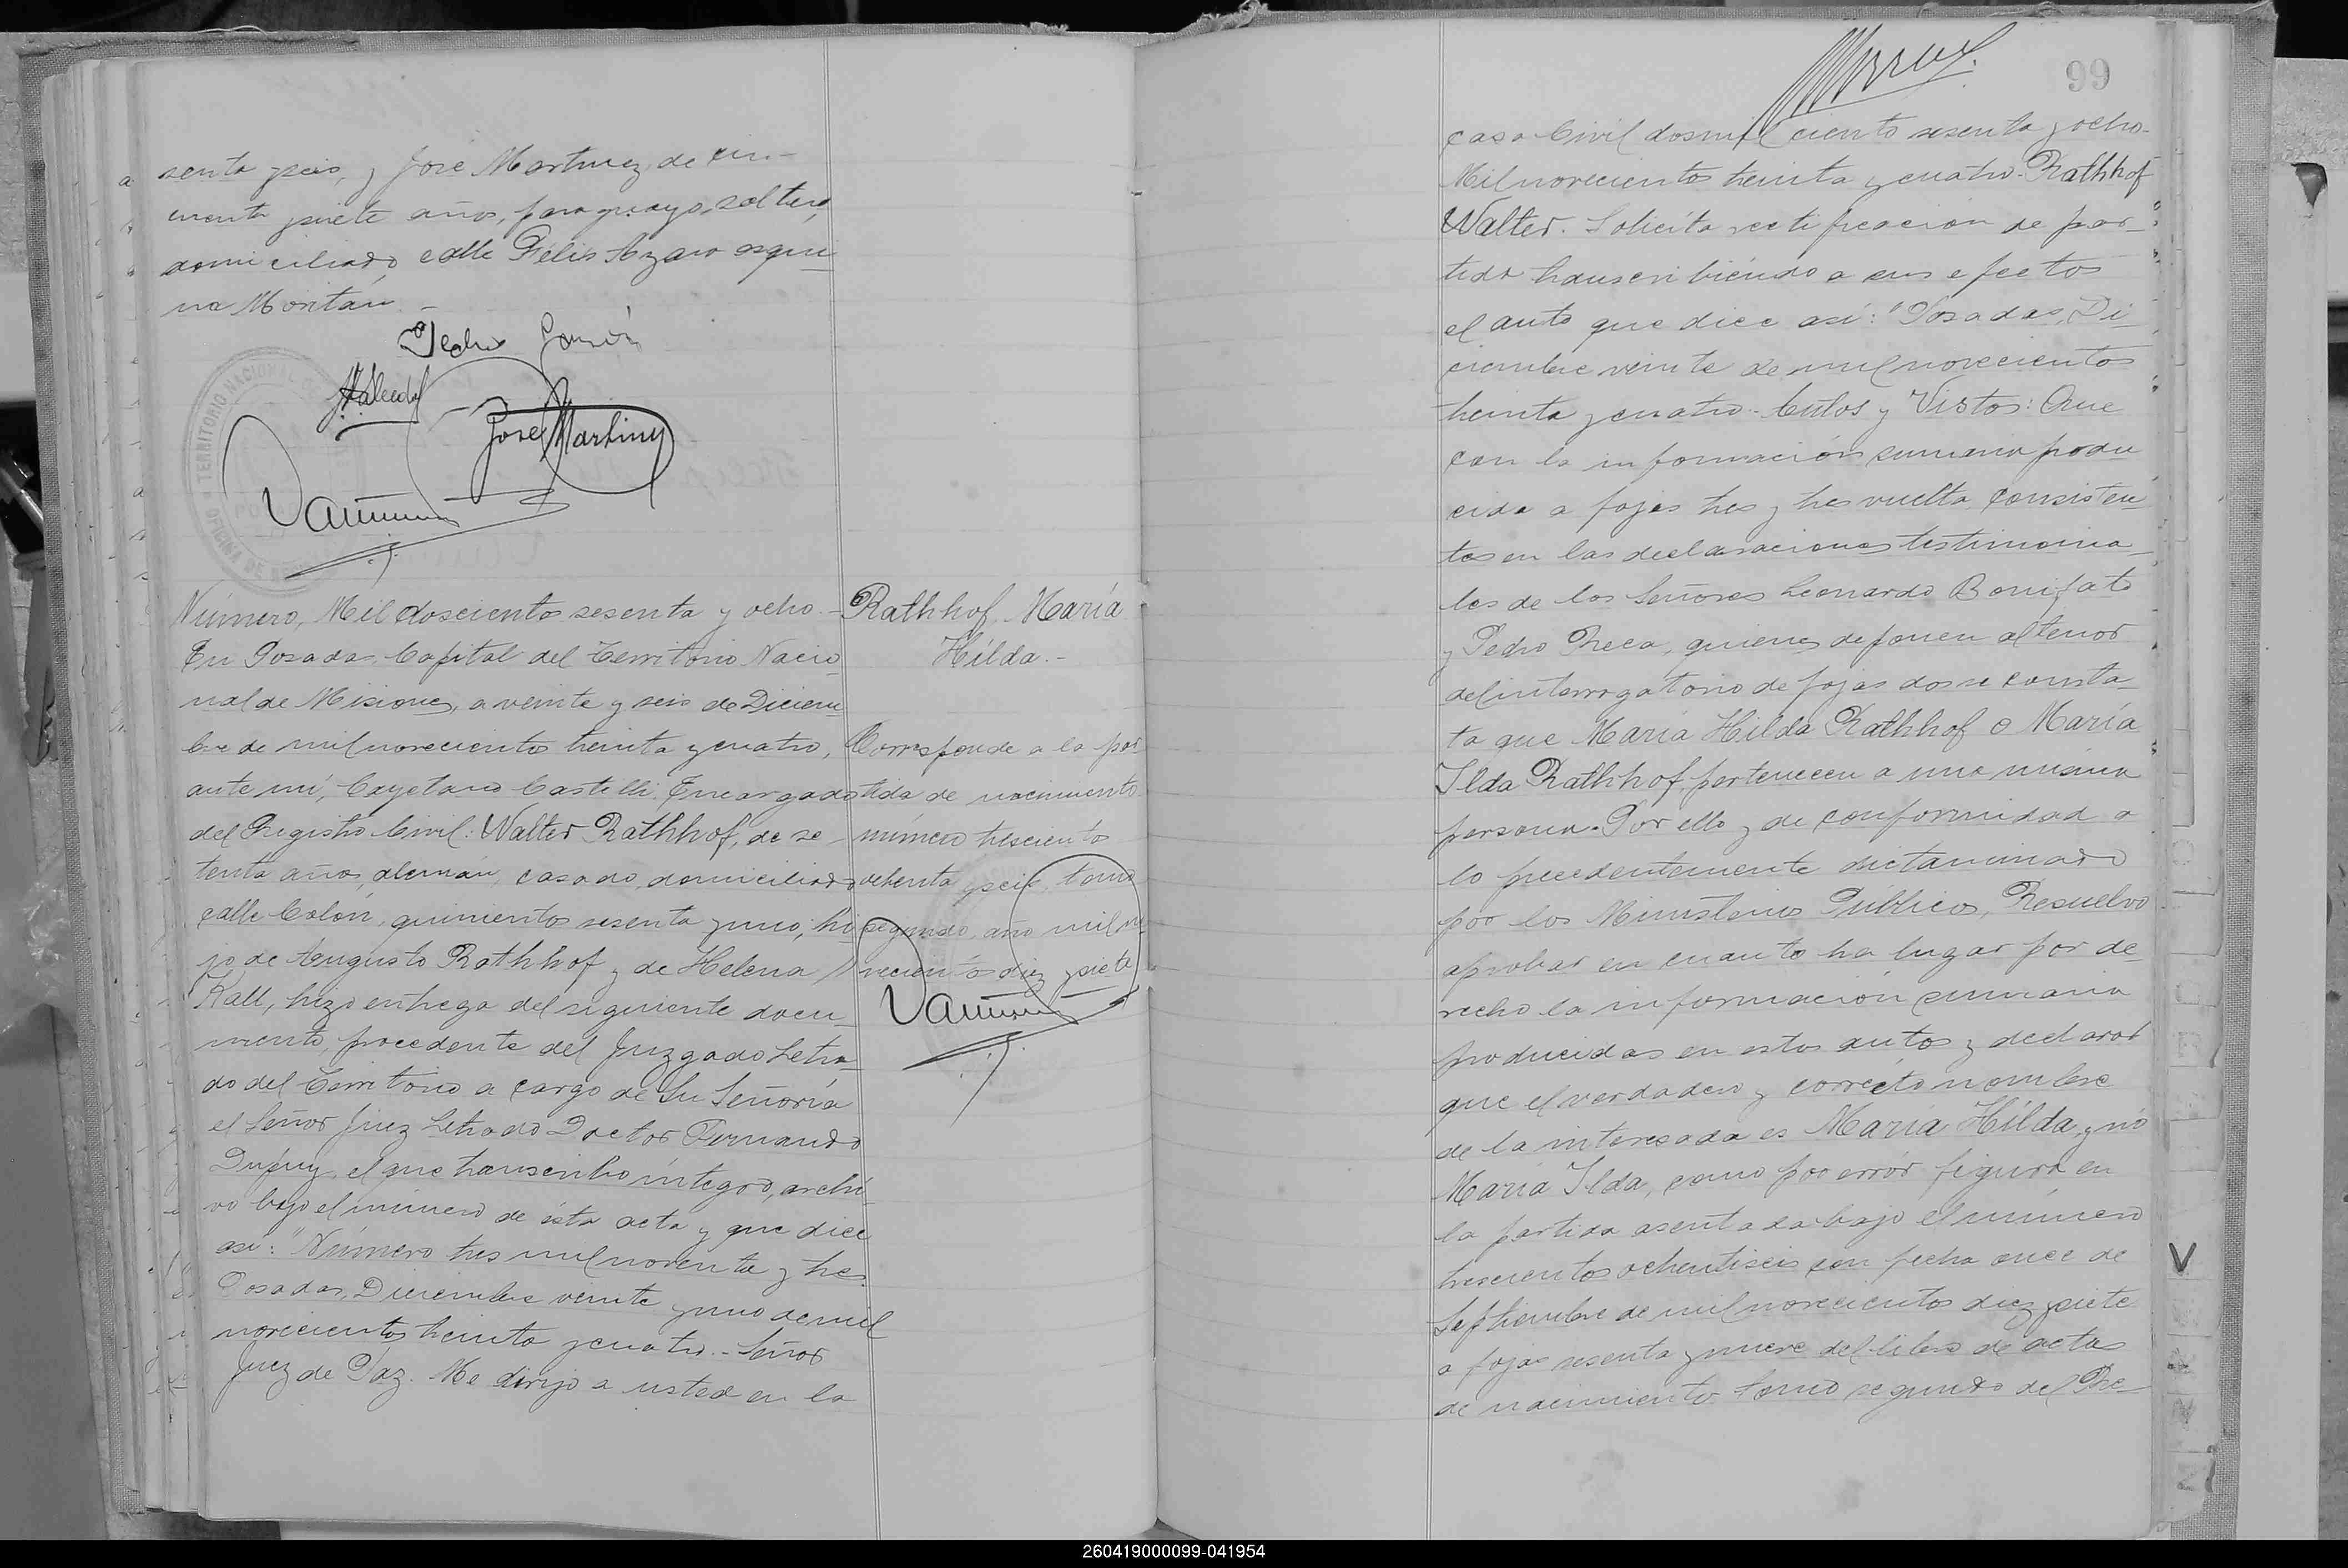 senta y seis, y José Martinez, de cin-
cuenta y siete años, paraguayo, soltero,
domiciliado, calle Félis Azara esqui-
na Moritán.-
Pedro
José Martinez
TERRITORIO NACIONAL
OFICINA DE
Número, Mil doscientos sesenta y ocho.-
En Posadas Capital del Territorio Nacio-
nal de Misiones, a veinte y seis de Diciem-
bre de mil novecientos treinta y cuatro,
ante mí, Cayetano Castelli Encargado
del Registro Civil: Walter Rathhof, de se-
tenta años, alemán, casado, domiciliado
calle Colón, quinientos sesenta y uno, hi-
jo de Augusto Rathhof y de Helena
Kall, hizo entrega del siguiente docu-
mento, procedente del Juzgado Letra-
do del Territorio a cargo de Su Señoría
el Señor Juez Letrado Doctor Fernando
Dupuy, el que transcribo íntegro, archi-
vo bajo el número de ésta acta y que dice
asi: "Número tres mil noventa y tres
Posadas, Diciembre veinte y uno de mil
novecientos treinta y cuatro.- Señor
Juez de Paz. Me dirijo a usted en la
Rathhof María
Hilda.-
Corresponde a la par-
tida de nacimiento
número trescientos
ochenta y seis, tomo
segundo, año mil no-
vecientos diez y siete
99
caso Civil dosmil ciento sesenta y ocho-
Mil novecientos treinta y cuatro- Rathhof
Walter. Solicita rectificación de par-
tida transcribiéndo a sus efectos
el auto que dice así: "Posadas, Di-
ciembre veinte de mil novecientos
treinta y cuatro.- Autos y Vistos: Que
con la información sumaria produ-
cida a fojas tres y tres vuelta, consisten-
tes en las declaraciones testimonia-
les de los Señores Leonardo Bonifato
y Pedro Reca, quienes deponen al tenor
del interrogatorio de fojas dos se consta-
ta que María Hilda Rathhof o María
Ilda Rathhof pertenecen a una misma
persona. Por ello y de conformidad a
lo precedentemente dictaminado
por los Ministerios Públicos, Resuelvo
aprobar en cuanto ha lugar por de-
recho la información sumaria
producidas en estos autos y declarar
que el verdadero y correcto nombre
de la interesada es María Hilda y nó
María Ilda, como por errór figura en
la partida asentada bajo el número
trescientos ochentiseis con fecha once de
Septiembre de mil novecientos diez y siete
a fojas sesenta y nueve del libro de actas
de nacimiento tomo segundo del Re-
V
260419000099-041954